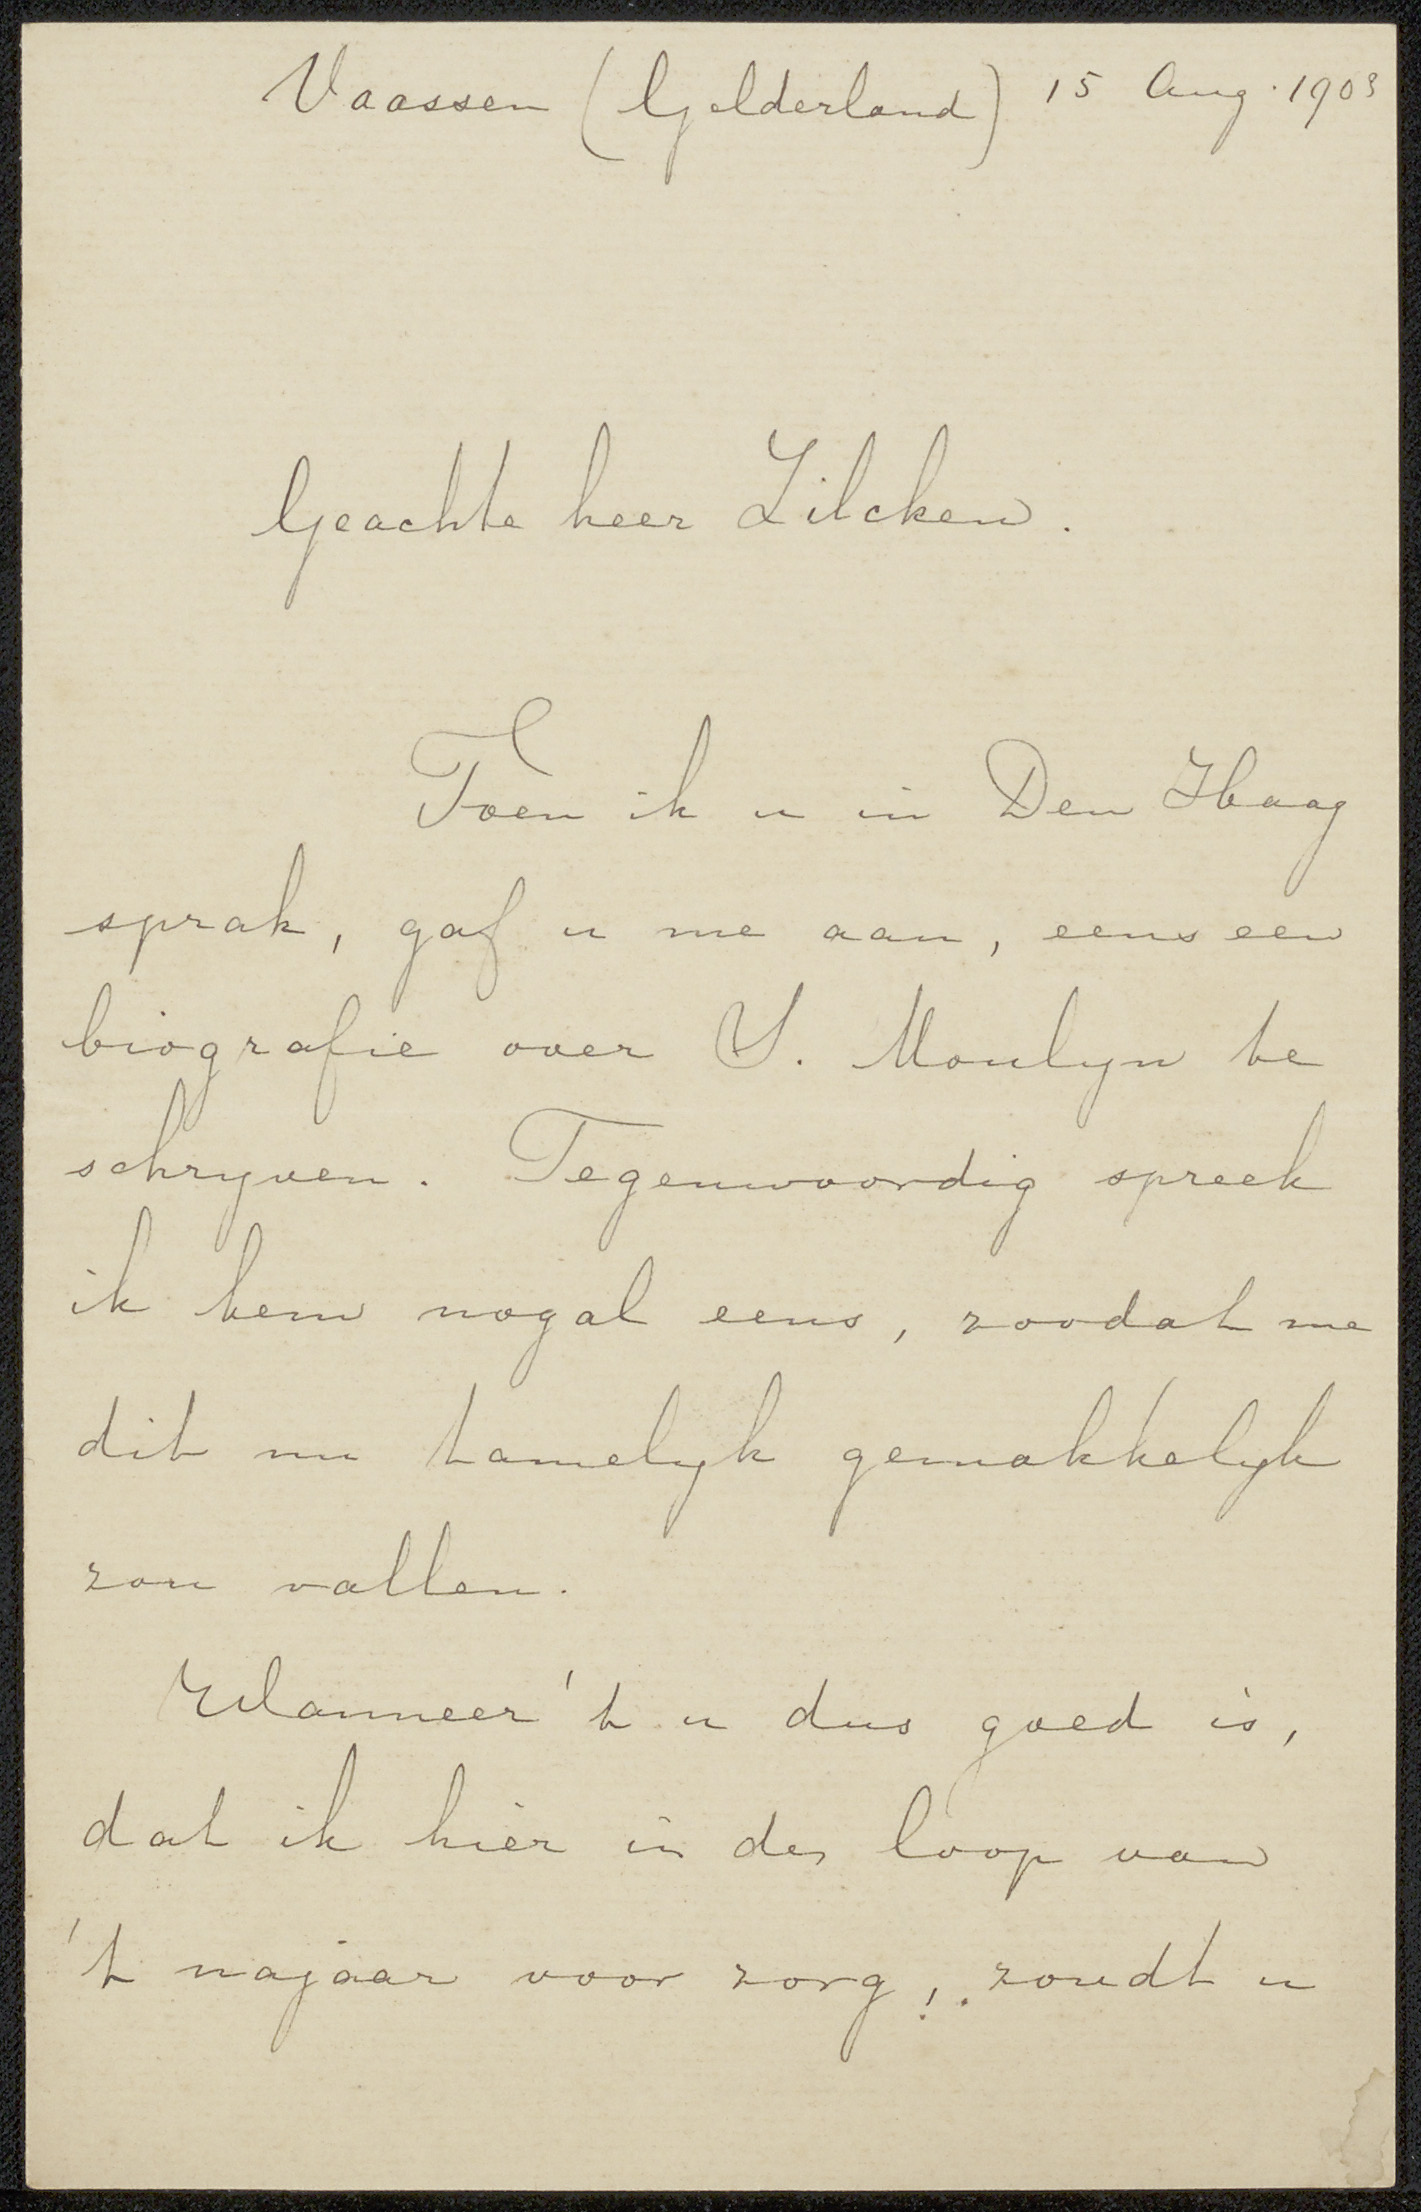 Vaassen (Gelderland) 15 Aug. 1903
Geachte heer Zilcken.
Toen ik u in Den Haag
sprak, gaf u me aan, eens een
biografie over S. Moulyn te
schryven. Tegenwoordig spreek
ik hem nogal eens, zoodat me
dit nu tamelyk gemakkelyk
zou vallen.
Wanneer 't u dus goed is,
dat ik hier in den loop van
't najaar voor zorg, zoudt u